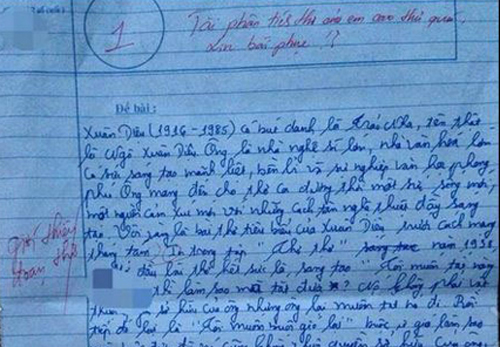 1
Tài phân tích thơ của em cao thủ quá.
xin bái phục!?
Đề bài:
Xuân Diệu (1916-1985) có bút danh là Trảo Nha, tên thật
là Ngô Xuân Diệu. Ông là nhà nghệ sĩ lớn, nhà văn hóa lớn
có sức sáng tạo mãnh liệt, bền bỉ và sự nghiệp văn học phong
phú. Ông mang đến cho thơ ca đương thời một sức sống mới,
một nguồn cảm xúc mới với những cách tân nghệ thuật đầy sáng
tạo. Vội vàng là bài thơ tiêu biểu của Xuân Diệu trước cách mạng
tháng tám. In trong tập "Thơ thơ" năm 1938
đầu bài thơ hết sức là sáng tạo "Tôi muốn tắt nắng
thì làm sao mà tắt được? Nó không phải vật
sở hữu của ông nhưng ông lại muốn tự do đi. Rồi
tiếp đó lại là "Tôi muốn buộc gió lại" buộc gió làm sao
giới thiệu